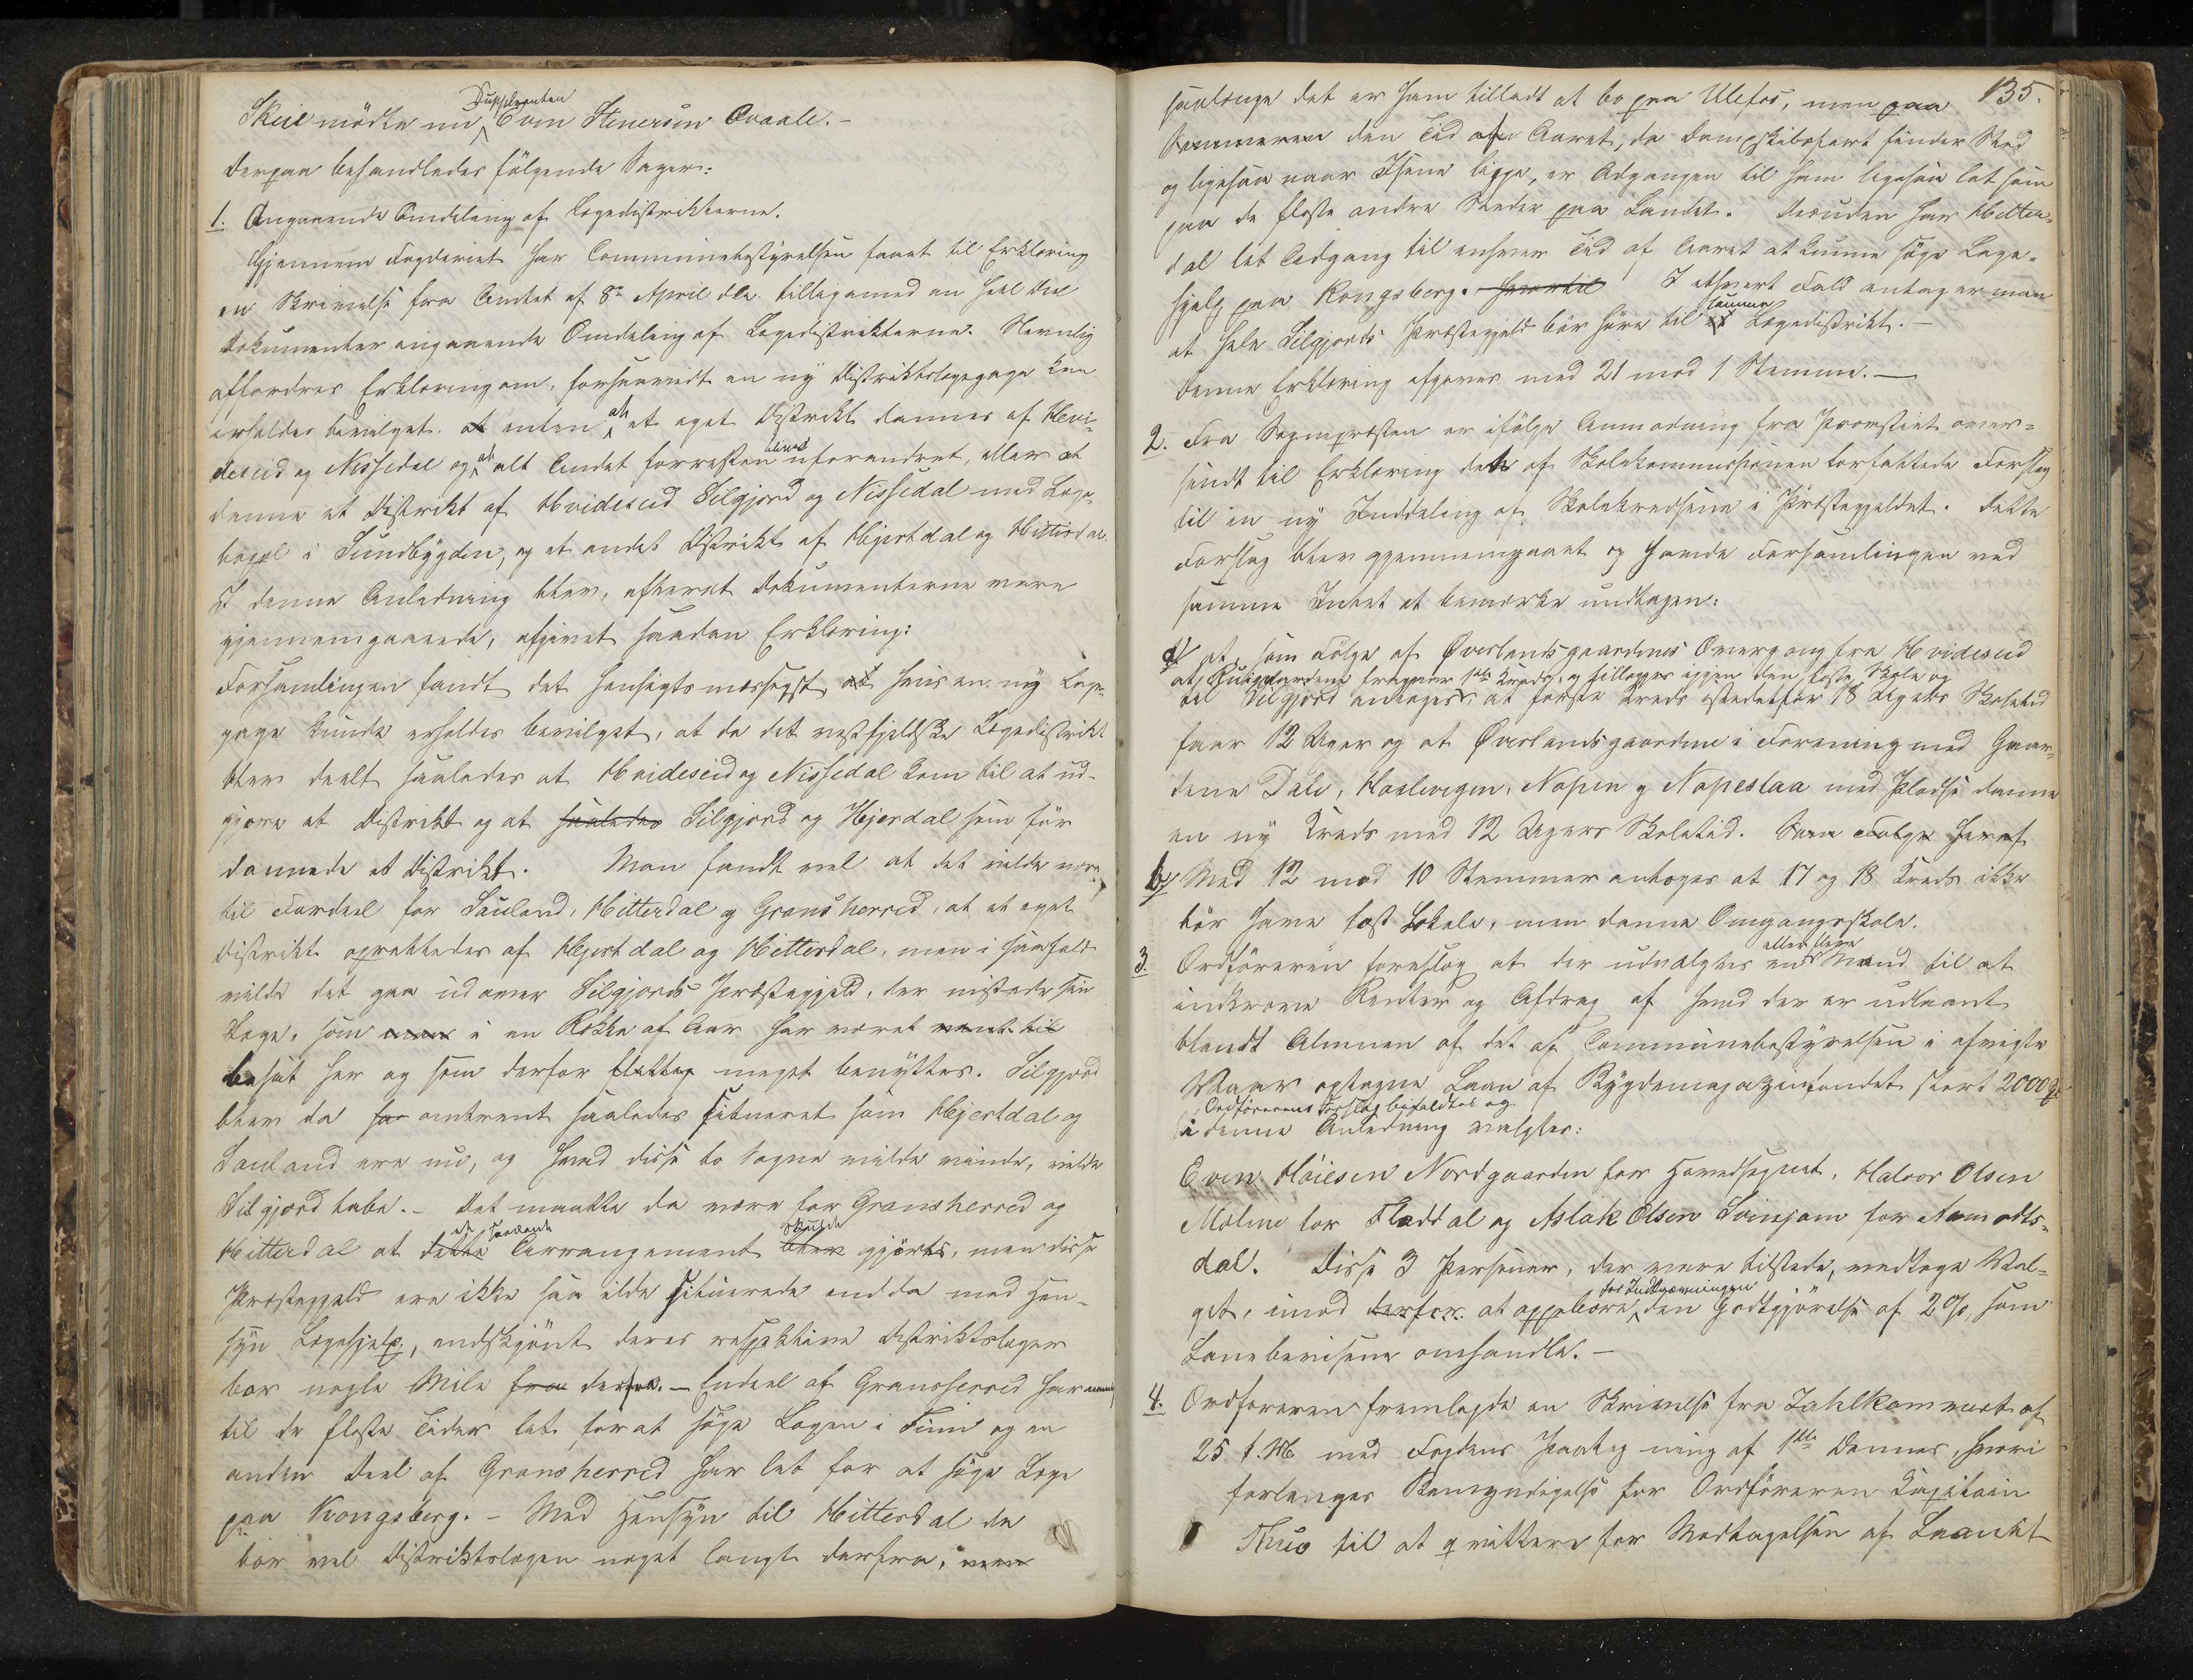 Suppleanten
Skeie mødte nu Even Stenersen Qvaale. –
Derpaa behandledes følgende Sager:
1. Angaaende Omdeling af Lægedistrikterne.
Gjennem Fogderiet har Communebestyrelsen faaet til Erklæring
en Skrivelse fra Amtet af 8de April dA. tilligemed en heel Deel
Dokumenter angaaende Omdeling af Lægedistrikterne. Navnlig
affordres Erklæring om, forsaavidt en ny Distriktslægegage kan
erholdes bevilget, at enten at et eget Distrikt dannes af Hvi-
deseid og Nissedal og at alt Andet forresten bliver uforandret, eller at
danne et Distrikt af Hvideseid Silgjord og Nissedal med Læge-
bopæl i Sundbygden, og et andet Distrikt af Hjertdal og Hitterdal.
I denne Anledning blev, efterat Dokumenterne vare
gjennemgaaede, afgivet saadan Erklæring:
Forsamlingen fandt det hensigtsmæssigst, at hvis en ny Læge-
gage kunde erholdes bevilget, at da det vestfjeldske Lægedistrikt
blev deelt saaledes at Hvideseid og Nissedal kom til at ud-
gjøre et Distrikt og at saaledes Silgjord og Hjerdal som før
dannede et Distrikt. Man fandt vel at det vilde være
til Fordeel for Sauland, Hitterdal og Gransherred, at et eget
Distrikt oprettedes af Hjertdal og Hitterdal, men i saafald
vilde det gaa ud over Silgjords Præstegjeld, der mistede sin
Læge, som i en Række af Aar har været vant til
bosat her og som derfor flittig meget benyttes. Silgjord
blev da saa omtrent saaledes situeret som Hjertdal og
Sauland ere nu, og hvad disse to Sogne vilde vinde, vilde
Silgjord tabe. – Det maatte da være for Gransherred og
de saadant skulde
Hitterdal at dette Arrangement blev gjørts, men disse
Præstegjeld ere ikke saa ilde situerede endda med Hen-
syn Lægehjelp, endskjønt deres respektive Distriktslæger
bor nogle Mile fra derfra. – Endeel af Gransherred har
til de fleste Tider let for at søge Lægen i Tinn og en
anden Deel af Gransherred har let for at søge Læge
paa Kongsberg. – Med Hensyn til Hitterdal da
bor vel Distriktslægen noget langt derfra, men
135.
saalænge det er ham tilladt at bo paa Ulefos, men paa
Sommeren den Tid af Aaret, da Dampskibsfart finder Sted
og ligesaa naar Isene ligge, er Adgangen til ham ligesaa let som
paa de fleste andre Steder paa Landet. Desuden har Hitter-
dal let Adgang til enhver Tid af Aaret at kunne søge Læge-
hjelp paa Kongsberg. Hvortil I ethvert Fald antager man
samme
at hele Silgjords Præstegjeld bør høre til et Lægedistrikt. –
Denne Erklæring afgaves med 21 mod 1 Stemme. –
2. Fra Sognepræsten er ifølge Anmodning fra Provstiet over-
sendt til Erklæring det af Skolekommissionen forfattede Forslag
til en ny Inddeling af Skolekredsene i Præstegjeldet. Dette
Forslag blev gjennemgaaet og havde Forsamlingen ved
samme Intet at bemærke undtagen:
a) at, som Følge af Øverlandsgaardenes Overgang fra Hvideseid
fragaaer 1ste Kreds, og tillægges igjen den faste Skole og
til Silgjord antages at første Kreds istedetfor 18 Ugers Skoletid
faar 12 Uger og at Øverlandsgaardene i Forening med Gaar-
dene Dale, Haslevigen, Napen og Napeslaa med Pladse danne
en ny Kreds med 12 Ugers Skoletid. Som Følge heraf
b) Med 12 mod 10 Stemmer antoges at 17 og 18 Kreds ikke
bør have fast Lokale, men danne Omgangsskole.
eller flere
3. Ordføreren foreslog at der udvælgtes en Mand til at
indkræve Renter og Afdrag af hvad der er udlaant
blandt Almuen af det af Communebestyrelsen i afvigte
Vaar optagne Laan af Bygdemagazinfondet stort 2000 Spd
Ordførerens Forslag bifaldtes og
i denne Anledning valgtes:
Even Høiesen Nordgaarden for Hovedsognet, Halvor Olsen
Moline for Flatdal og Aslak Olsen Svinjom for Aamodts-
dal. Disse 3 Personer, der vare tilstede, modtoge Val-
for Indkrævningen
get, imod derfor at oppebære den Godtgjørelse af 2%, som
Lånebeviserne omhandle. –
4. Ordføreren fremlagde en Skrivelse fra Zahlkammeret af
25 f.M med Fogdens Paategning af 1ste Dennes, hvori
forlanges Bemyndigelse for Ordføreren Kapitain
Thue til at qvittere for Modtagelsen af Laanet